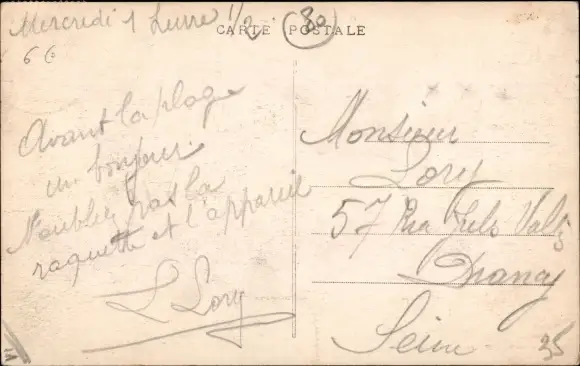 Mercredi 1 heure 1/2
80
CARTE POSTALE
66
Avant la plage
un bonjour.
N'oubliez pas la
raquette et l'appareil
L Lory
Monsieur
Lory
57 Rue Jules Vallès
Drancy
Seine
35